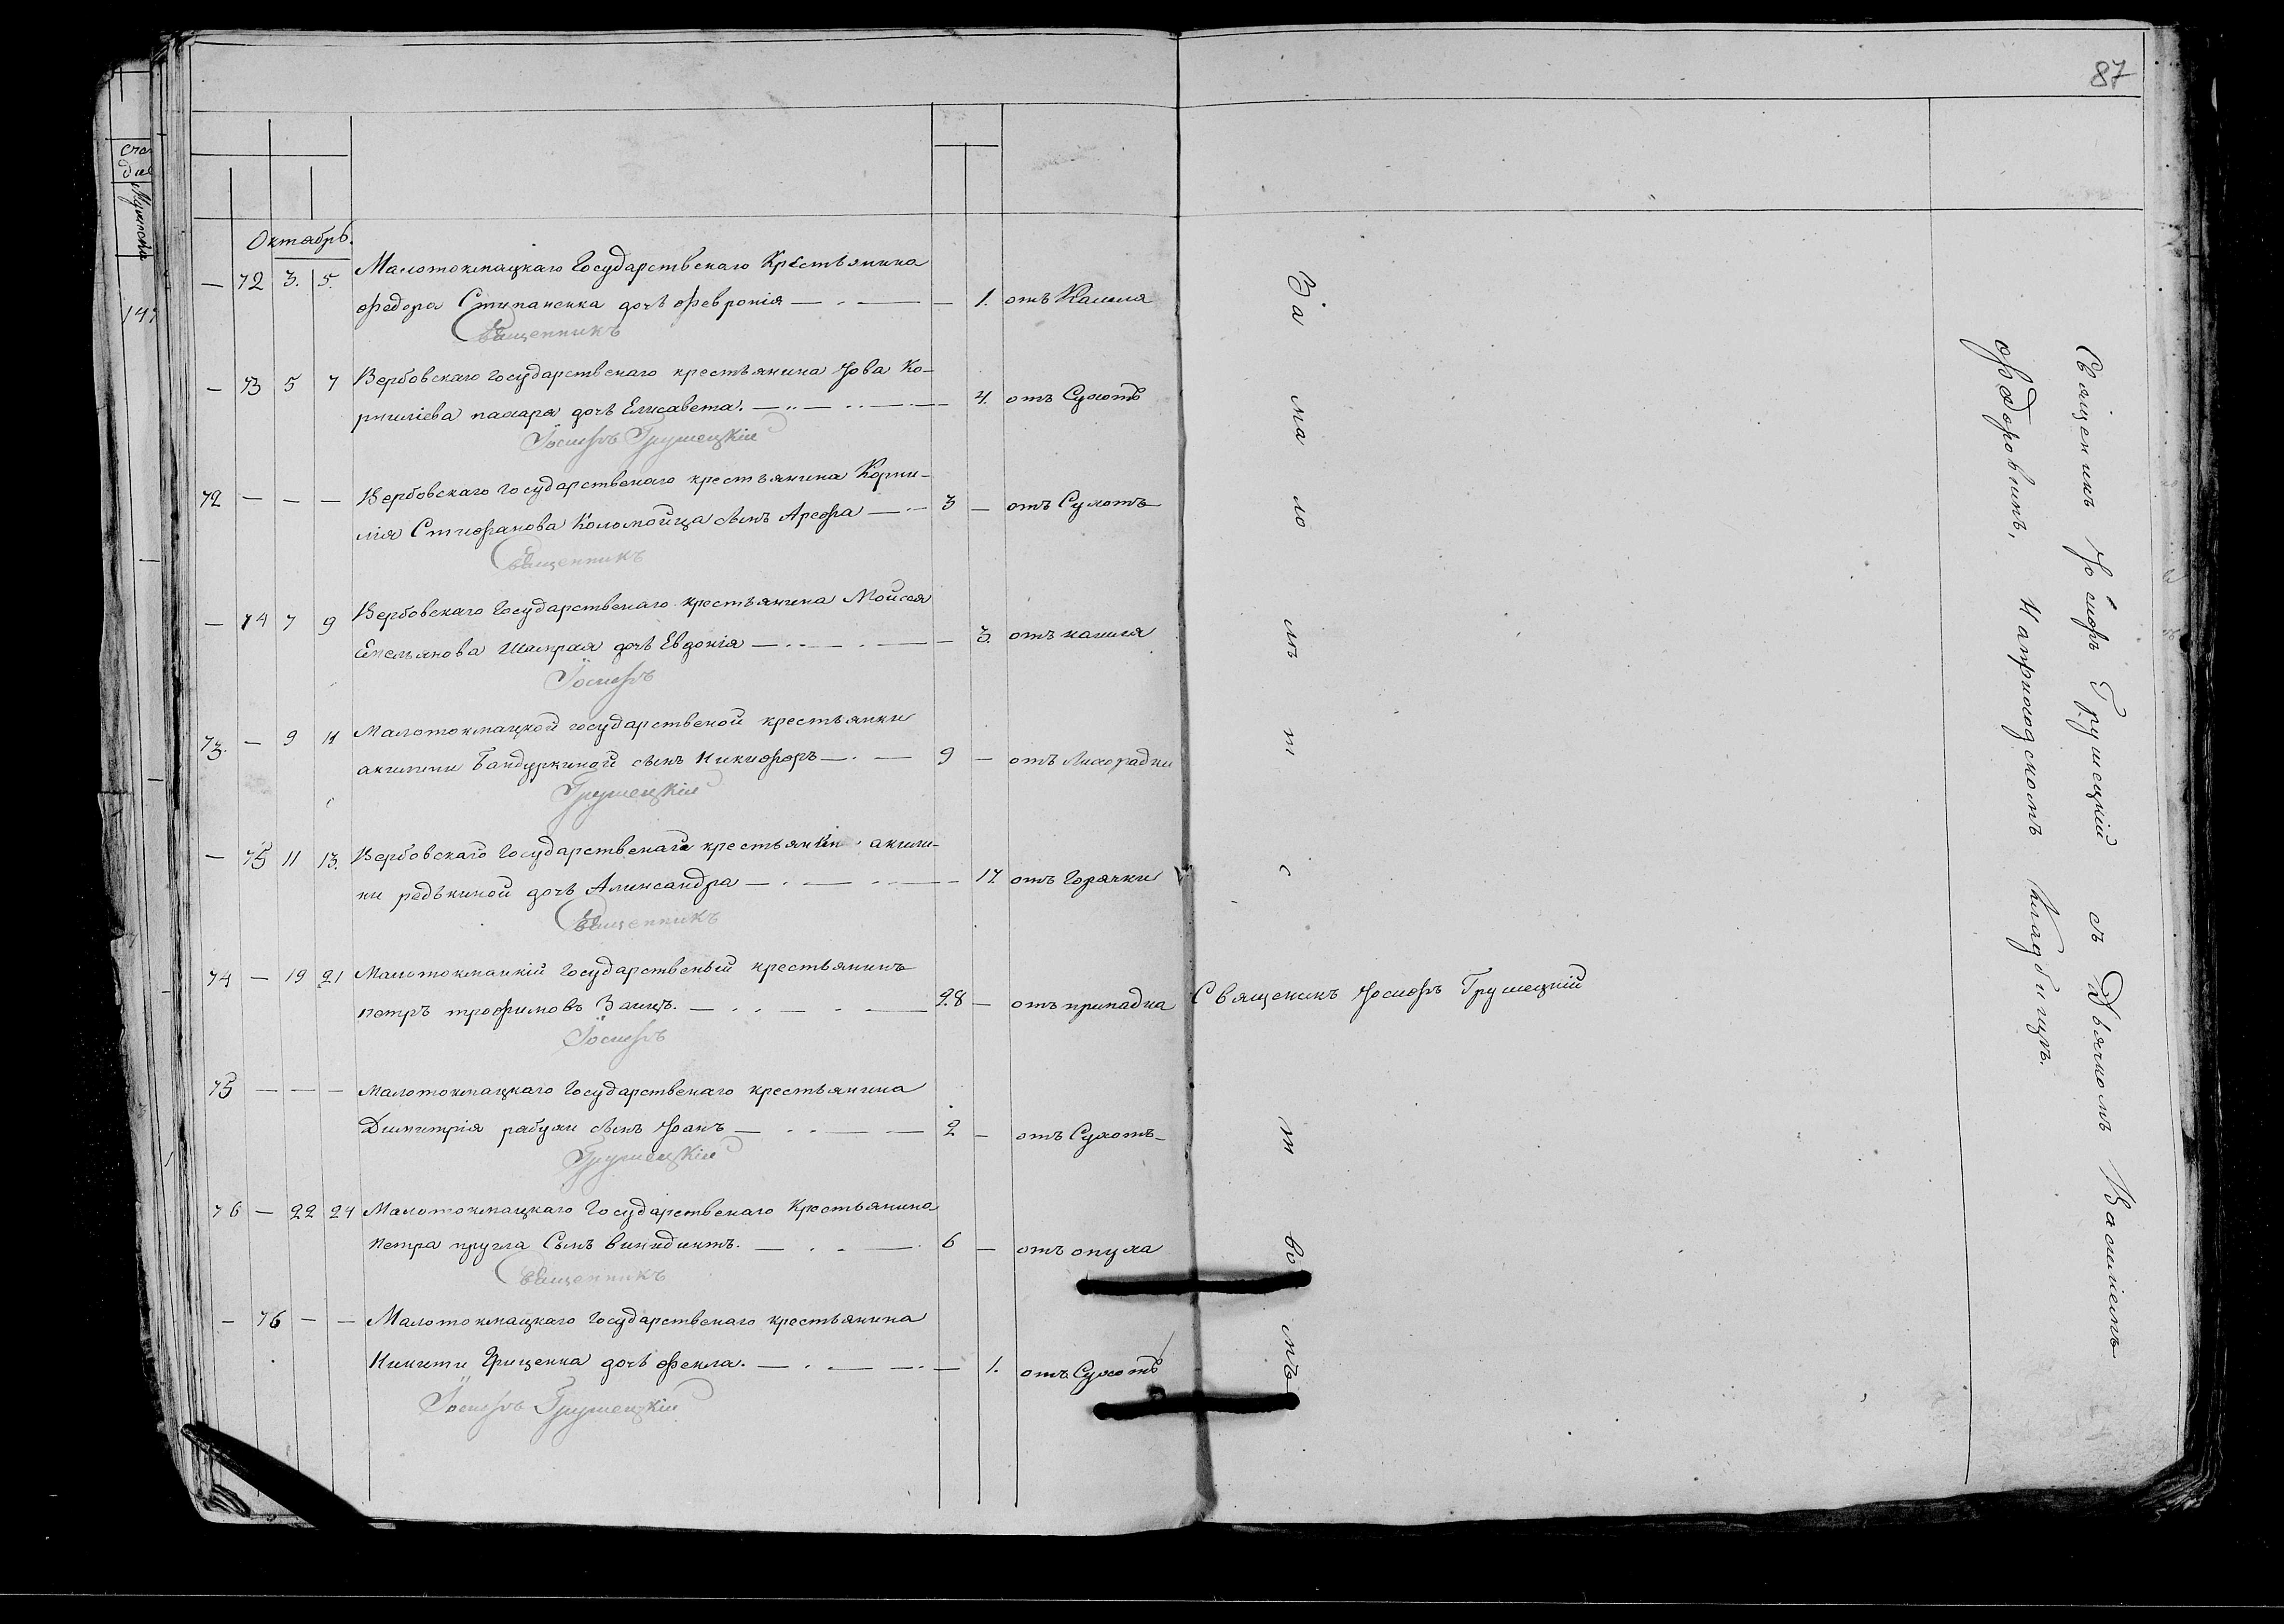 87
Октябрь.
— 72 3. 5. Малотокмацкаго Государственаго Крестьянина
Федора Стипаненка дочь Февронія — — 1. отъ Кашля
Священникъ
— 73 5 7 Вербовскаго государственаго крестьянина Іова Ко-
рниліева пахаря дочь Елисавета. — 4. отъ Сухотъ
Іосифъ Грушецкій
72 — — — Вербовскаго государственаго крестьянина Корни-
лія Стифанова Коломойца сынъ Арефа — 3 — отъ Сухотъ
Священникъ
— 74 7 9 Вербовскаго Государственаго крестьянина Мойсея
Емельянова Шамрая дочь Евдокія — — 3. отъ кашля
Іосифъ
73. — 9 11 Малотокмацкой государственой крестьянки
акилини Бандуркиной сынъ Никифоръ — 9 — отъ Лихорадки
Грушецкій
— 75 11 13. Вербовскаго Государственаго крестьянки акили-
ни редькиной дочь Александра — — 17. отъ Горячки
Священникъ
74 — 19 21 Малотокмацкій Государственый крестьянинъ
петръ трофимовъ Заицъ. — 28 — отъ припадка
Священикъ Іосифъ Грушецкій
Іосифъ
75 — — — Малотокмацкаго Государственаго крестьянина
Димитрія рабухи сынъ Іоанъ — 2 — отъ Сухотъ
Грушецкій
76 — 22 24 Малотокмацкаго Государственаго Крестьянина
петра пругла Сынъ виникдиктъ. — 6 — отъ опуха
Священникъ
— 76 — — Малотокмацкаго Государственаго крестьянина
Никити Гриценка дочь Фекла. — — 1. отъ Сухотъ
Іосифъ Грушецкій
За мало лѣтствомъ
Священикъ Іосифъ Грушецкій съ Дьячкомъ Василіемъ
Федоровимъ, На приходскомъ Кладбищѣ.